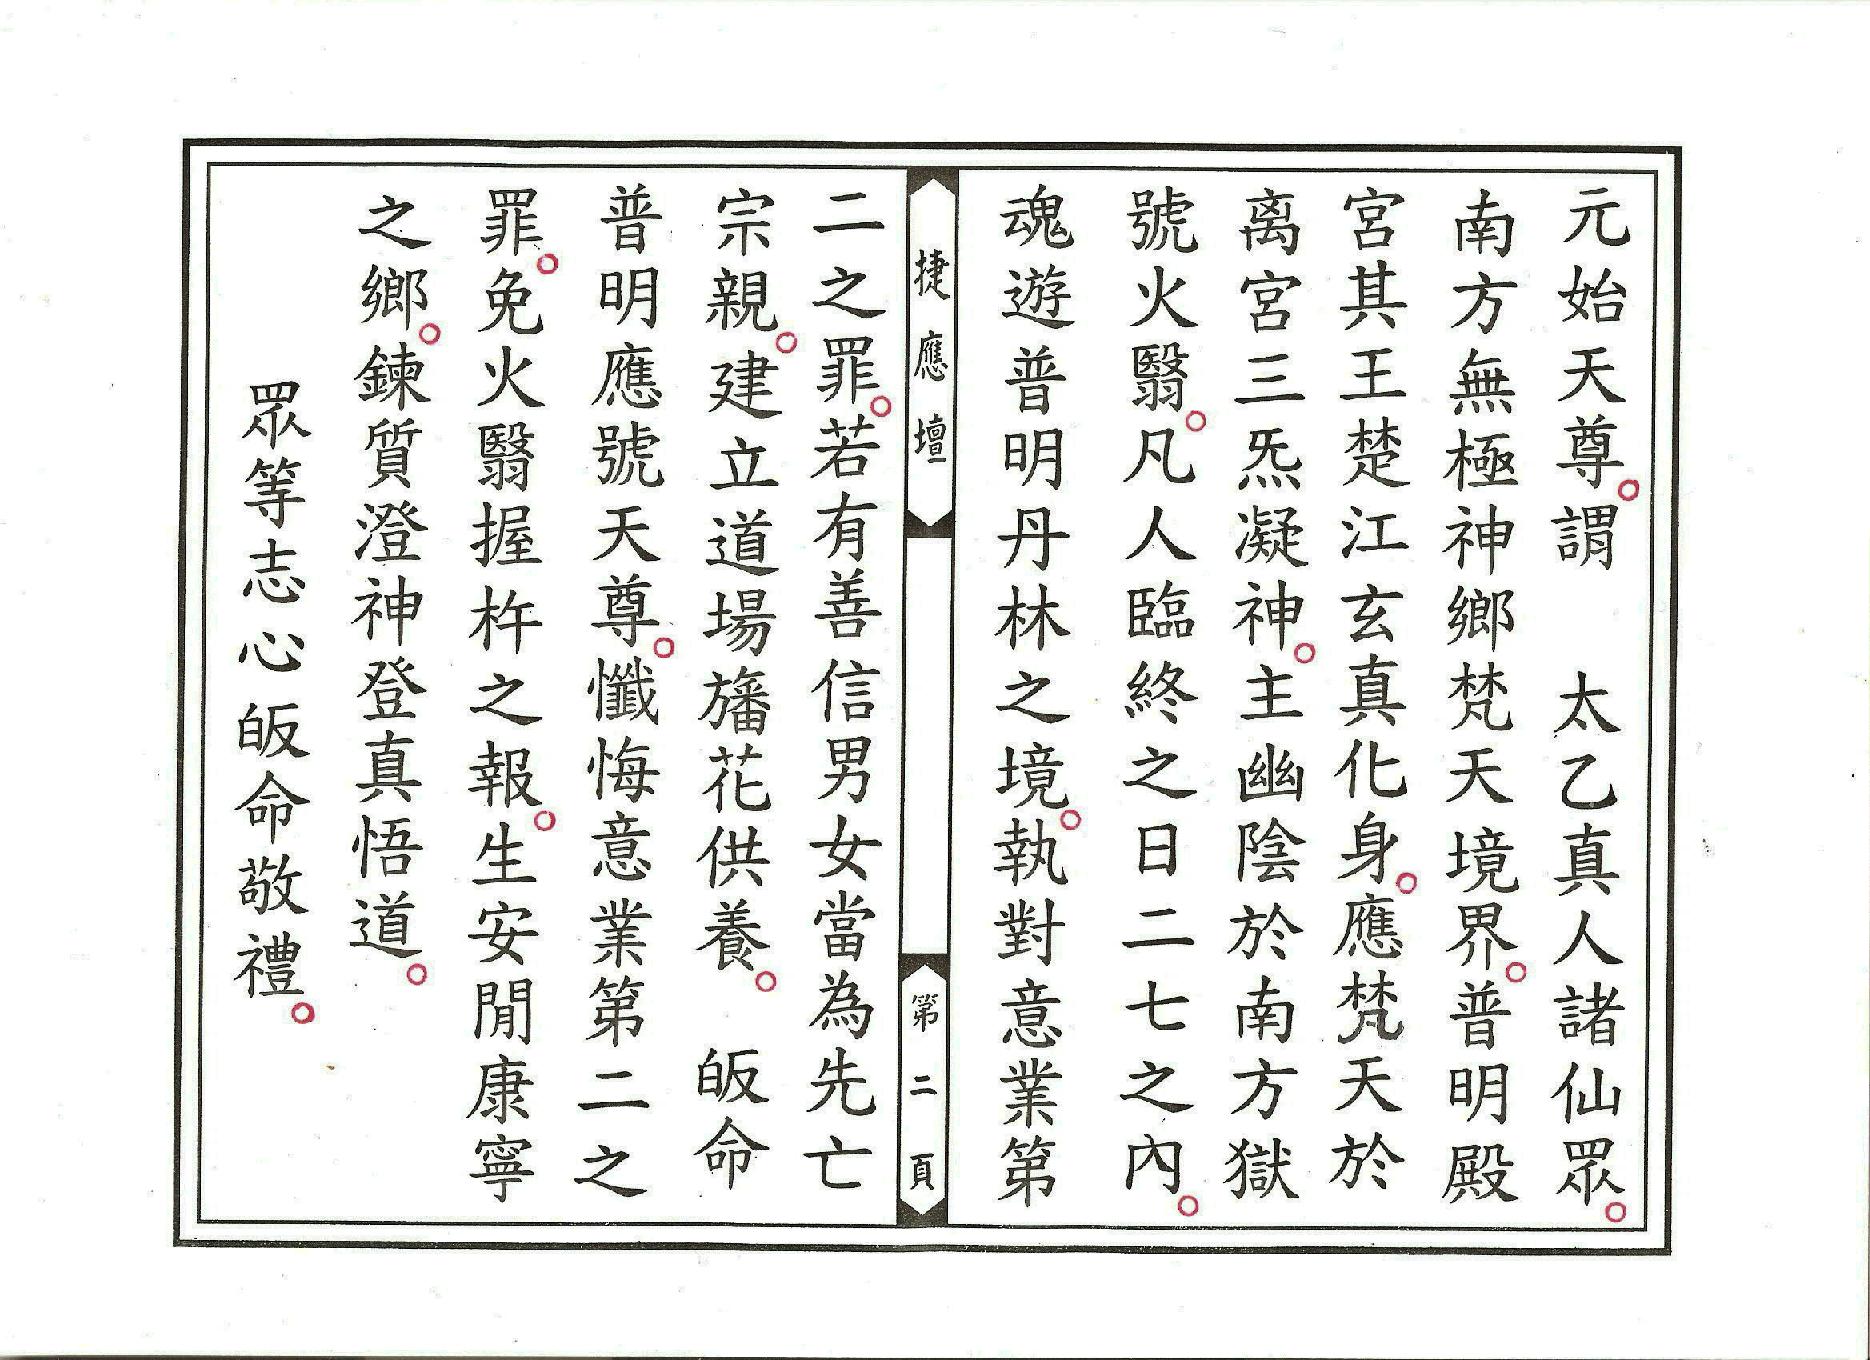 元始天尊。謂　太乙真人諸仙眾。
南方無極神鄉梵天境界。普明殿
宮其王楚江玄真化身。應梵天於
离宮三炁凝神。主幽陰於南方獄
號火翳。凡人臨終之日二七之內。
魂遊普明丹林之境。執對意業第
捷應壇
第二頁
二之罪。若有善信男女當為先亡
宗親。建立道場旛花供養。　皈命
普明應號天尊。懺悔意業第二之
罪。免火翳握杵之報。生安閒康寧
之鄉。鍊質澄神登真悟道。
眾等志心皈命敬禮。